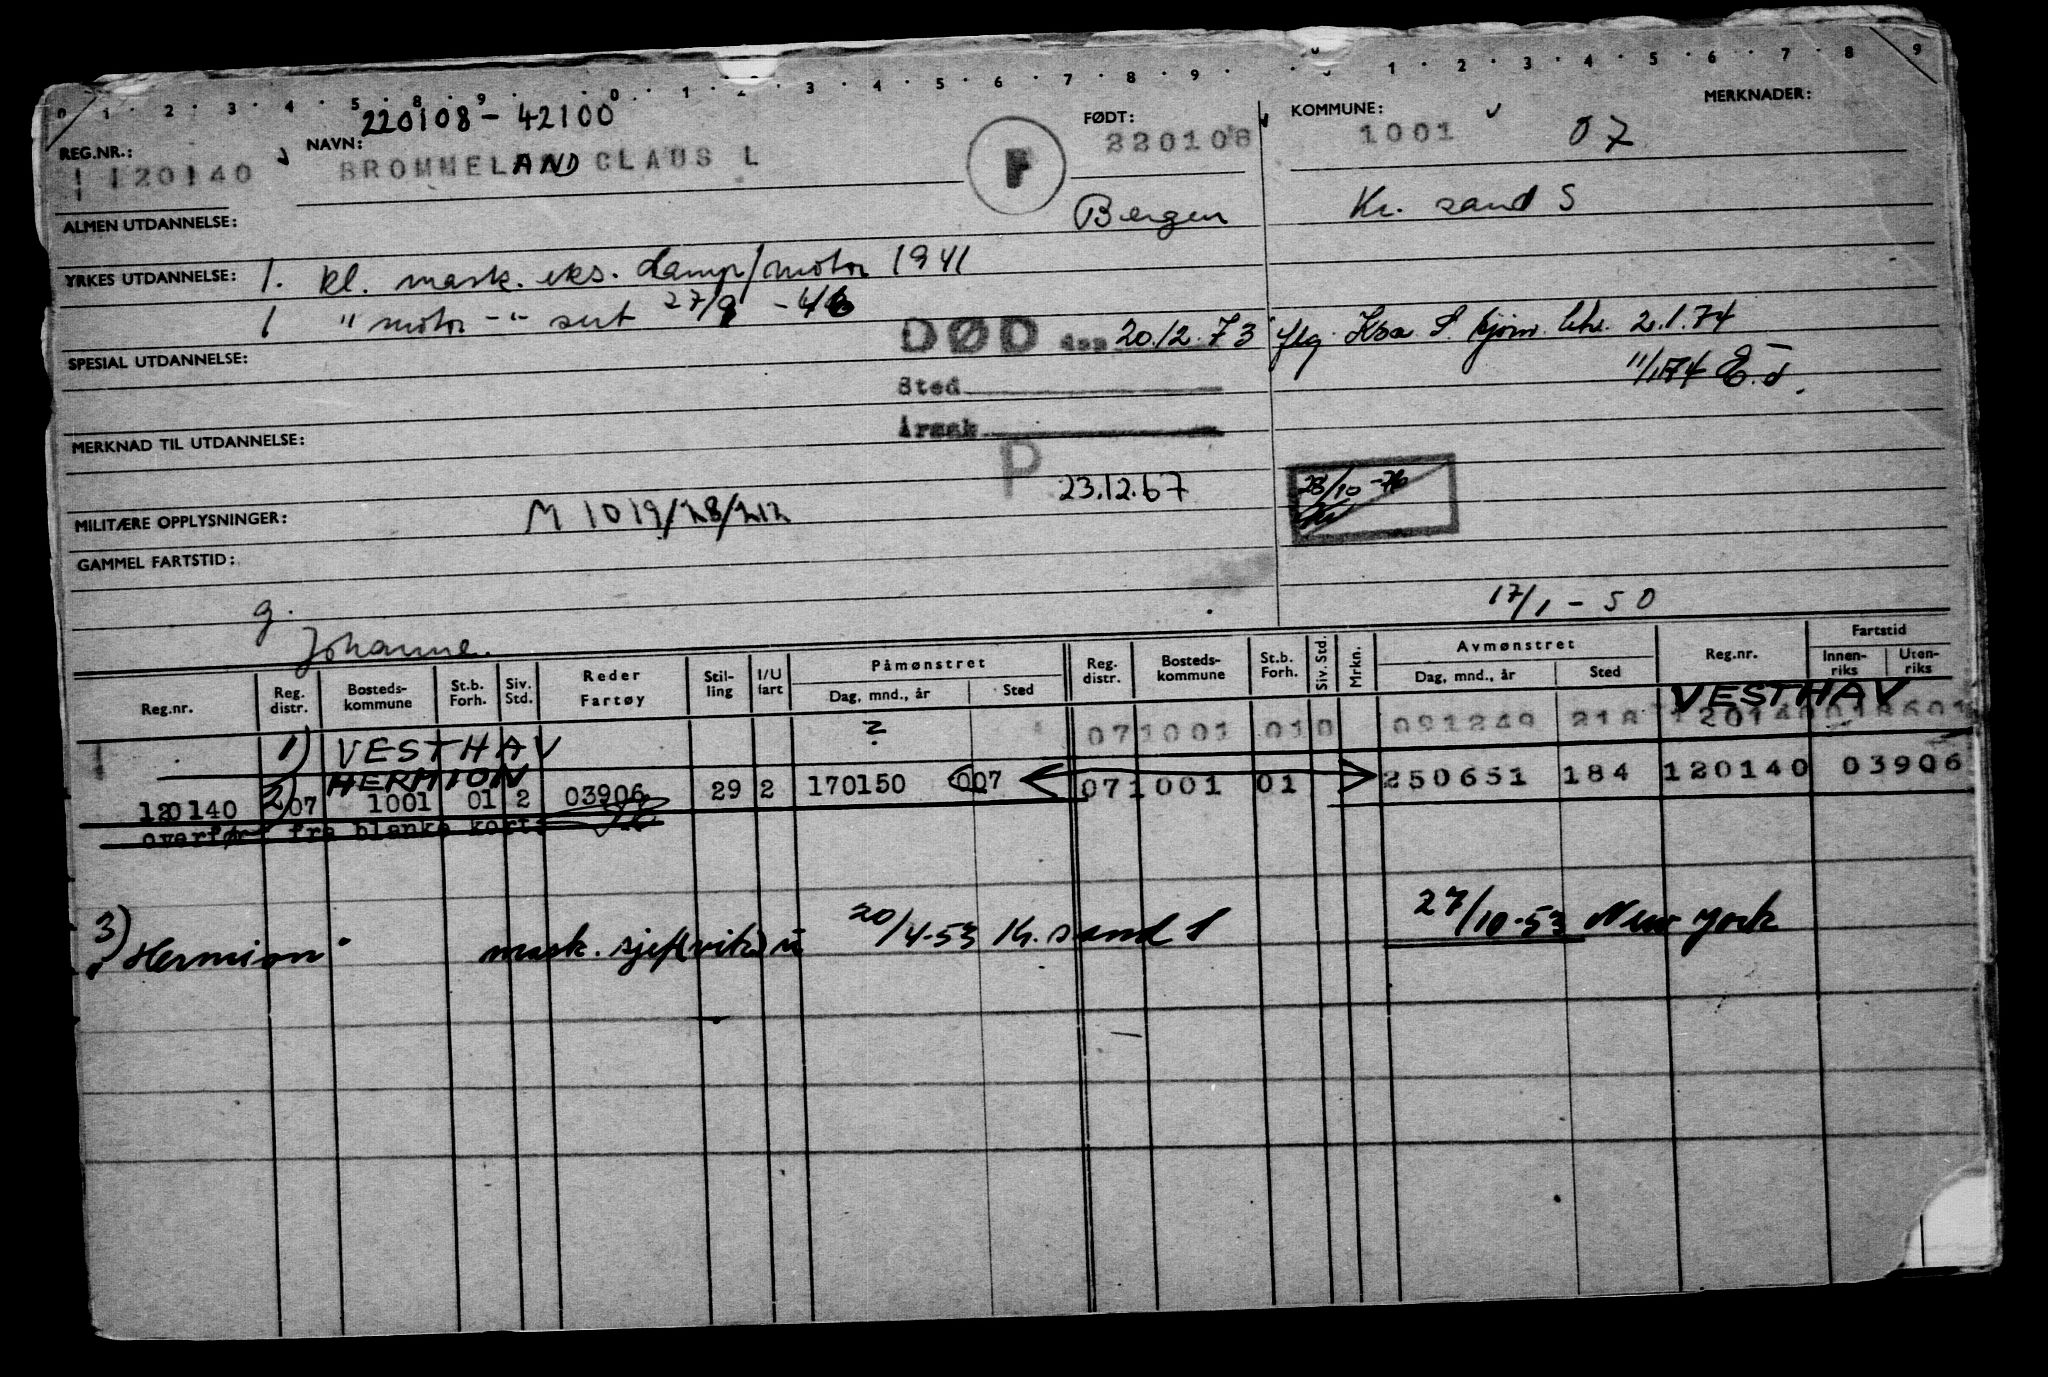 0 1 2 3 4 5 8 9 0 1 2 3 4 5 6 7 8 9 0 1 2 3 4 5 6 7 8 9
220108-42100
REG.NR.: NAVN: FØDT: KOMMUNE: MERKNADER:
120140 BROMMELAND CLAUS L F 220108 1001 07
ALMEN UTDANNELSE: Bergen Kr. sand S
YRKES UTDANNELSE: 1. kl. mask. eks. damp/motor 1941
1 " motor -" sert 27/9 -46
DØD den 20.12.73 flg. Ksa S. sjøm. ktr. 2.1.74
SPESIAL UTDANNELSE:
Sted 11/1 74
Årsak
MERKNAD TIL UTDANNELSE:
P 23.12.67 28/10-76
MILITÆRE OPPLYSNINGER: M 1019/28/212
GAMMEL FARTSTID:
g. 17/1-50
Johanne.
Reg.nr. Reg. distr. Bosteds- kommune St.b. Forh. Siv. Std. Reder Fartøy Stil- ling I/U fart Påmønstret Dag, mnd., år Sted Reg. distr. Bosteds- kommune St.b. Forh. Siv. Std. Mrkn. Avmønstret Dag, mnd., år Sted Reg.nr. Fartstid Innen- riks Uten- riks
VESTHAV
1) VESTHAV ? 07 1001 01 0 091249 218 120140 018601
2) HERMION
120140 07 1001 01 2 03906 29 2 170150 007 07 1001 01 250651 184 120140 03906
overført fra blanke kort
3) "Hermion" mask. sjef(vik) u 20/4-53 Kr. sand S 27/10-53 New York